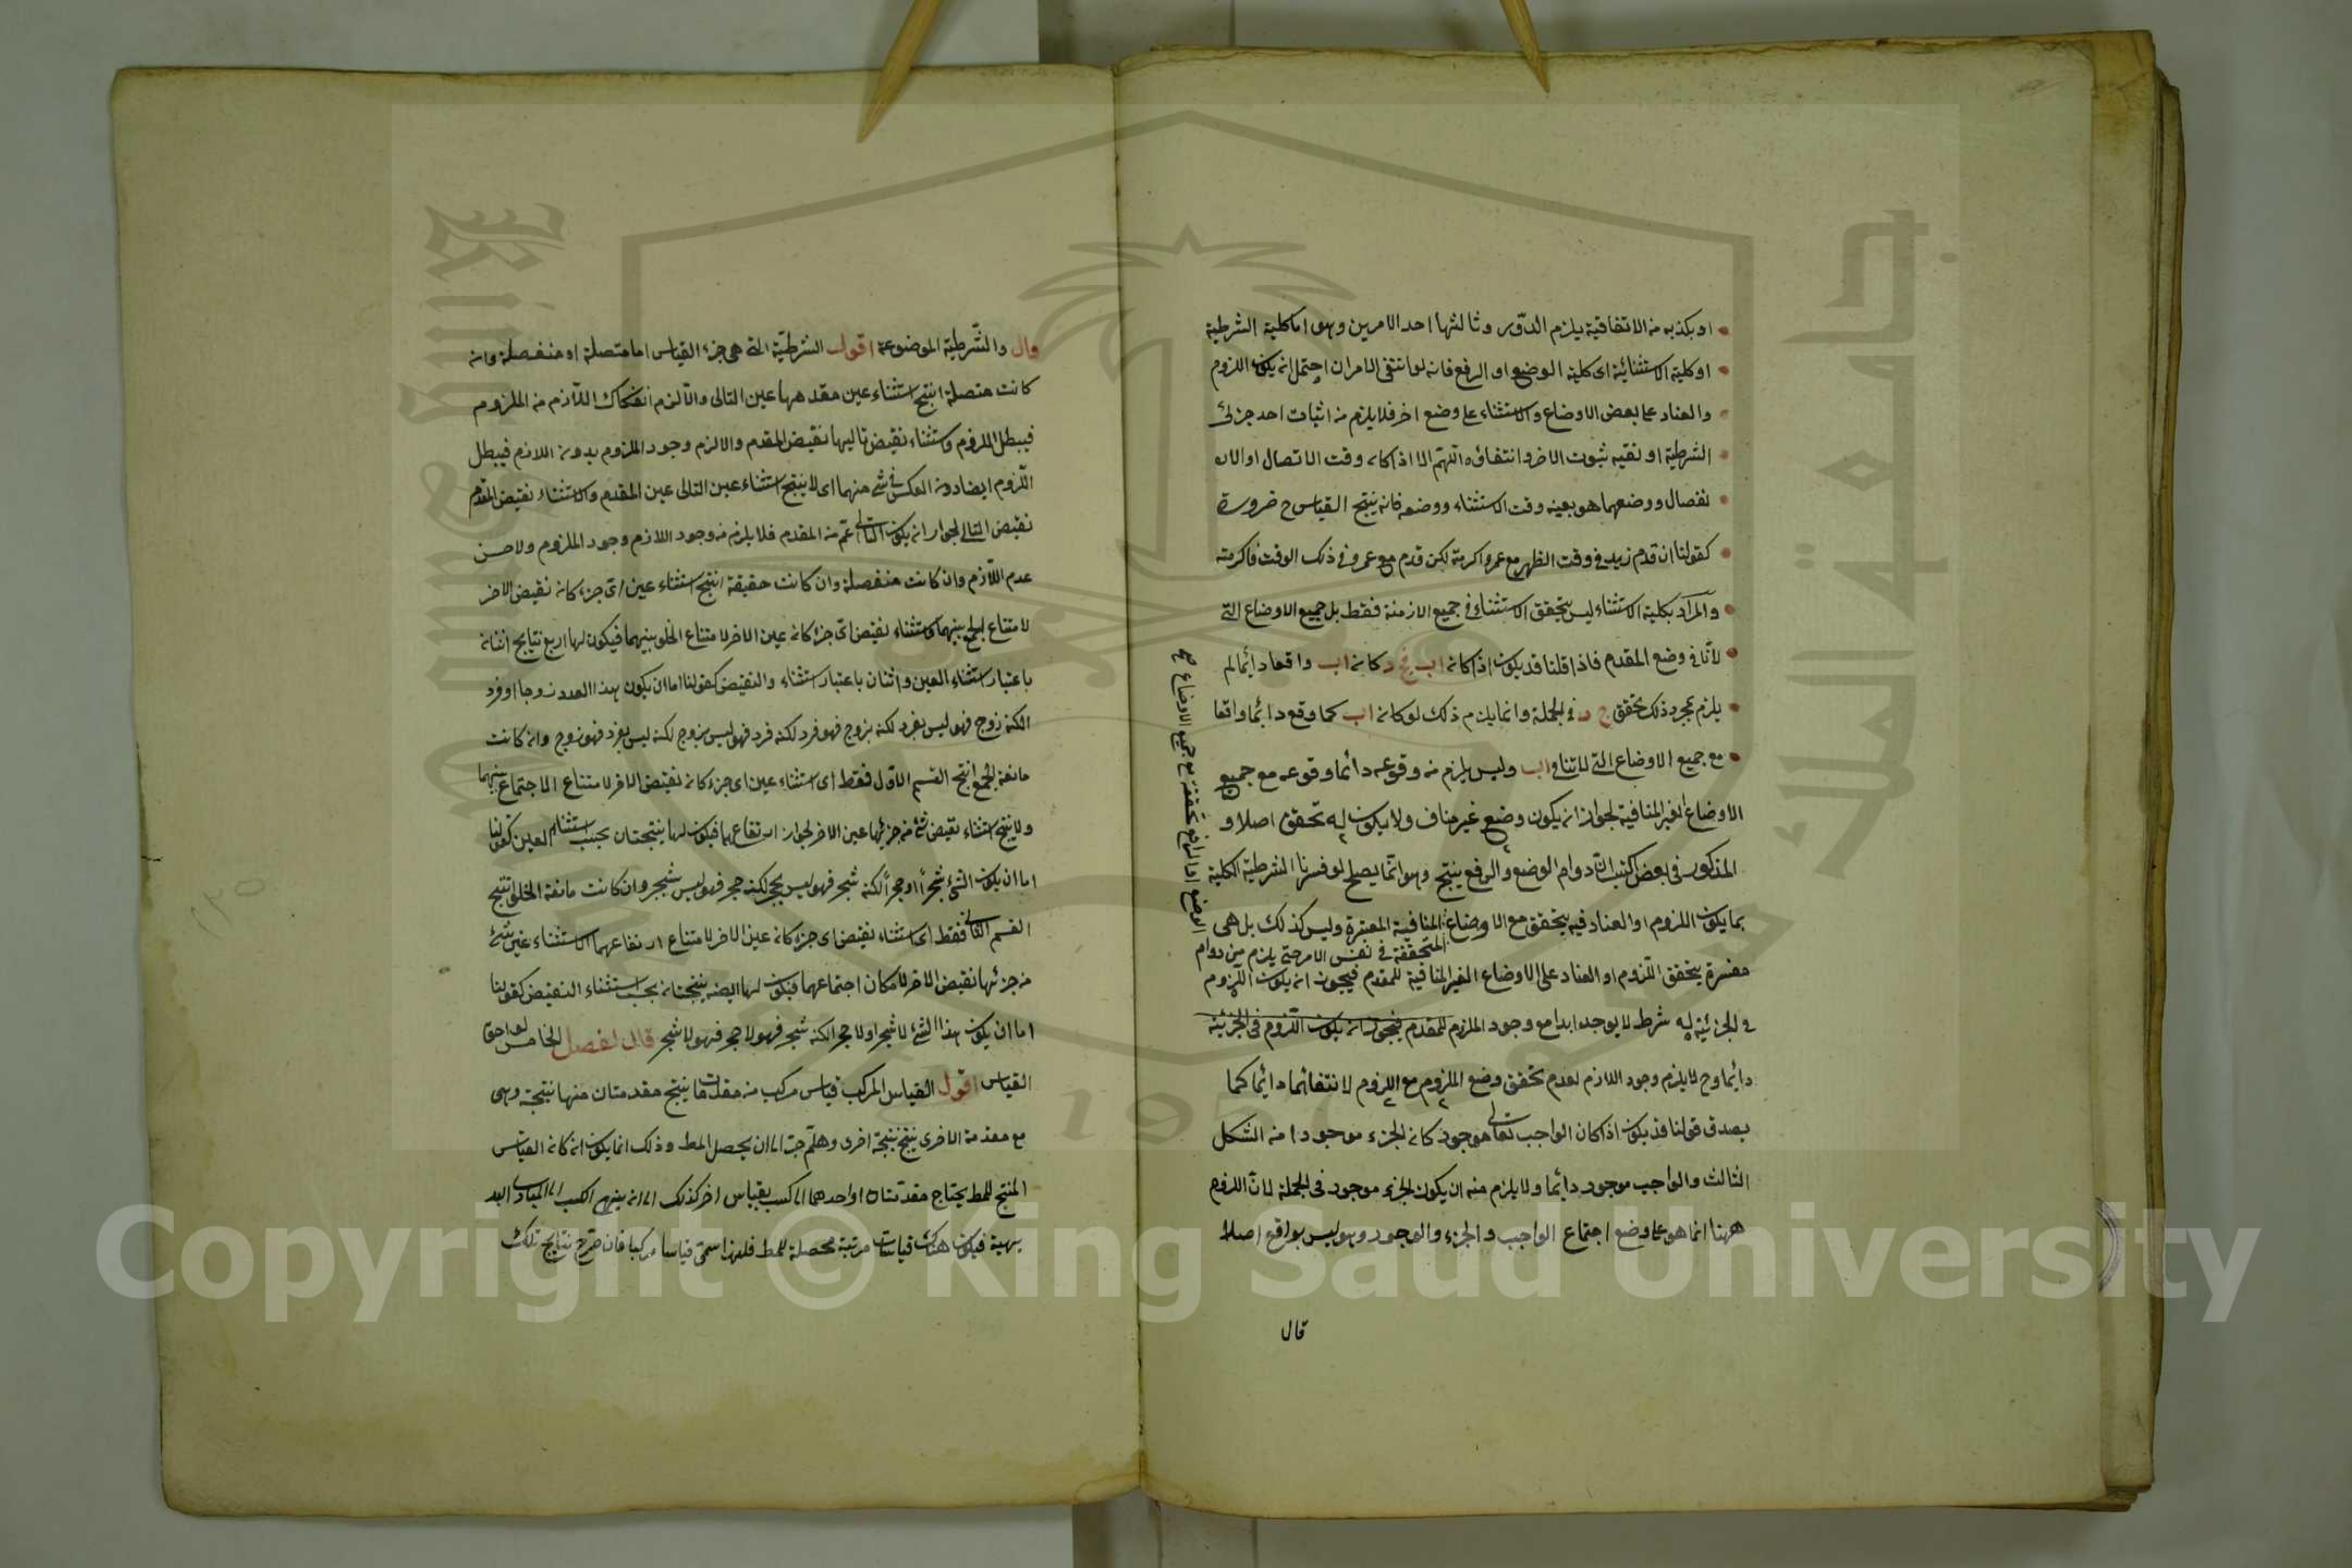 او بكذبه من الاتفاقية يلزم الدور وثالثها احد الامرين وهو اما كلية الشرطية
او كلية الاستثنائية اى كلية الوضع او الرفع فانه لو انتفى الامران احتمل ان يكون اللزوم
والعناد على بعض الاوضاع والاستثناء على وضع اخر فلا يلزم من اثبات احد جزئى
الشرطية او نفيه ثبوت الاخر وانتفاؤه اللهم الا اذا كان وقت الاتصال او الان
نفصال ووضعهما هو بعينه وقت الاستثناء ووضعه فانه ينتج القياس ح ضرورة
كقولنا ان قدم زيد فى وقت الظهر مع عمرو اكرمته لكن قدم مع عمرو فى ذلك الوقت فاكرمته
والمراد بكلية الاستثناء ليس تحقق الاستثناء فى جميع الازمنة فقط بل جميع الاوضاع التى
لا تنافى وضع المقدم فاذا قلنا قد يكون اذا كان اب فج د كان اب واقعا دائما لم
يلزم بمجرد ذلك تحقق ج د فى الجملة وانما يلزم ذلك لو كان اب كما وقع دائما واقعا
مع جميع الاوضاع التى لا تنافى اب وليس يلزم من وقوعه دائما وقوعه مع جميع
الاوضاع الغير المنافية لجواز ان يكون وضع غير مناف ولا يكون له تحقق اصلا و
المذكور فى بعض الكتب ان دوام الوضع والرفع ينتج وهو انما يصح لو فسرنا الشرطية الكلية
بما يكون اللزوم او العناد فيه يتحقق مع الاوضاع المنافية المعتبرة وليس كذلك بل هى
المتحققة فى نفس الامر حتى يلزم من دوام
الوضع او الرفع تحققه مع جميع الاوضاع صح
مفسرة بتحقق اللزوم او العناد على الاوضاع الغير المنافية للمقدم فيجوز ان يكون اللزوم
فى الجزئية له شرط لا يوجد ابدا مع وجود الملزم للمقدم فيجوز ان يكون اللزوم فى الجزئية
دائما وح لا يلزم وجود اللازم لعدم تحقق وضع الملزوم مع اللزوم لانتفائهما دائما كما
يصدق قولنا قد يكون اذا كان الواجب تعالى موجود كان الجزء موجودا من الشكل
الثالث والواجب موجود دائما ولا يلزم منه ان يكون الجزء موجود فى الجملة لان اللزوم
ههنا انما هو على وضع اجتماع الواجب والجزء والوجود وهو ليس بواقع اصلا
قال
قال والشرطية الموضوعة اقول الشرطية التى هى جزء القياس اما متصلة او منفصلة وان
كانت متصلة انتج استثناء عين مقدمها عين التالى والا لزم انفكاك اللازم من الملزوم
فيبطل اللزوم واستثناء نقيض تاليها نقيض المقدم والا لزم وجود الملزوم بدون اللازم فيبطل
اللزوم ايضا دون العكس فى شئ منهما اى لا ينتج استثناء عين التالى عين المقدم ولا استثناء نقيض المقدم
نقيض التالى لجواز ان يكون التالى اعم من المقدم فلا يلزم من وجود اللازم وجود الملزوم ولا من
عدم اللازم وان كانت منفصلة وان كانت حقيقة انتج استثناء عين اى جزء كان نقيض الاخر
لامتناع الجمع بينهما واستثناء نقيض اى جزء كان عين الاخر لامتناع الخلو بينهما فيكون لها اربع نتايج اثنان
باعتبار استثناء العين واثنان باعتبار استثناء والنقيض كقولنا اما ان يكون هذا العدد زوجا او فرد
الكنه زوج فهو ليس بفرد لكنه بزوج فهو فرد لكنه فرد فهو ليس بزوج لكنه ليس بفرد فهو زوج وان كانت
مانعة الجمع انتج القسم الاول فقط اى استثناء عين اى جزء كان نقيض الاخر لامتناع الاجتماع بينهما
ولا ينتج استثناء نقيض شئ من جزئيها عين الاخر لجواز ارتفاعهما فيكون لها نتيجتان بحسب استثناء العين كقولنا
اما ان يكون الشئ شجرا او حجرا لكنه شجر فهو ليس بحجر لكنه حجر فهو ليس بشجر وان كانت مانعة الخلو انتج
القسم الثانى فقط اى استثناء نقيض اى جزء كان عين الاخر لامتناع ارتفاعهما لا استثناء عين شئ
من جزئها نقيض الاخر لامكان اجتماعهما فيكون لها ايضا نتيجتان بحسب استثناء النقيض كقولنا
اما ان يكون هذا الشئ لا شجر او لا حجر الكنه شجر فهو لا حجر فهو لا شجر قال الفصل الخامس لواحق
القياس اقول القياس المركب قياس مركب من مقدمات ينتج مقدمتان منها نتيجة وهى
مع مقدمة الاخرى ينتج نتيجة اخرى وهلم جرا الى ان يحصل المط وذلك انما يكون ان كان القياس
المنتج للمط يحتاج مقدمتاه او احدهما الى كسب بقياس اخر كذلك الى ان ينتهى الكسب الى المبادى البد
يهية فيكون هناك قياسات مرتبة محصلة للمط فلهذا سمى قياسا مركبا فان صرح نتايج تلك
Copyright © King Saud University
1957